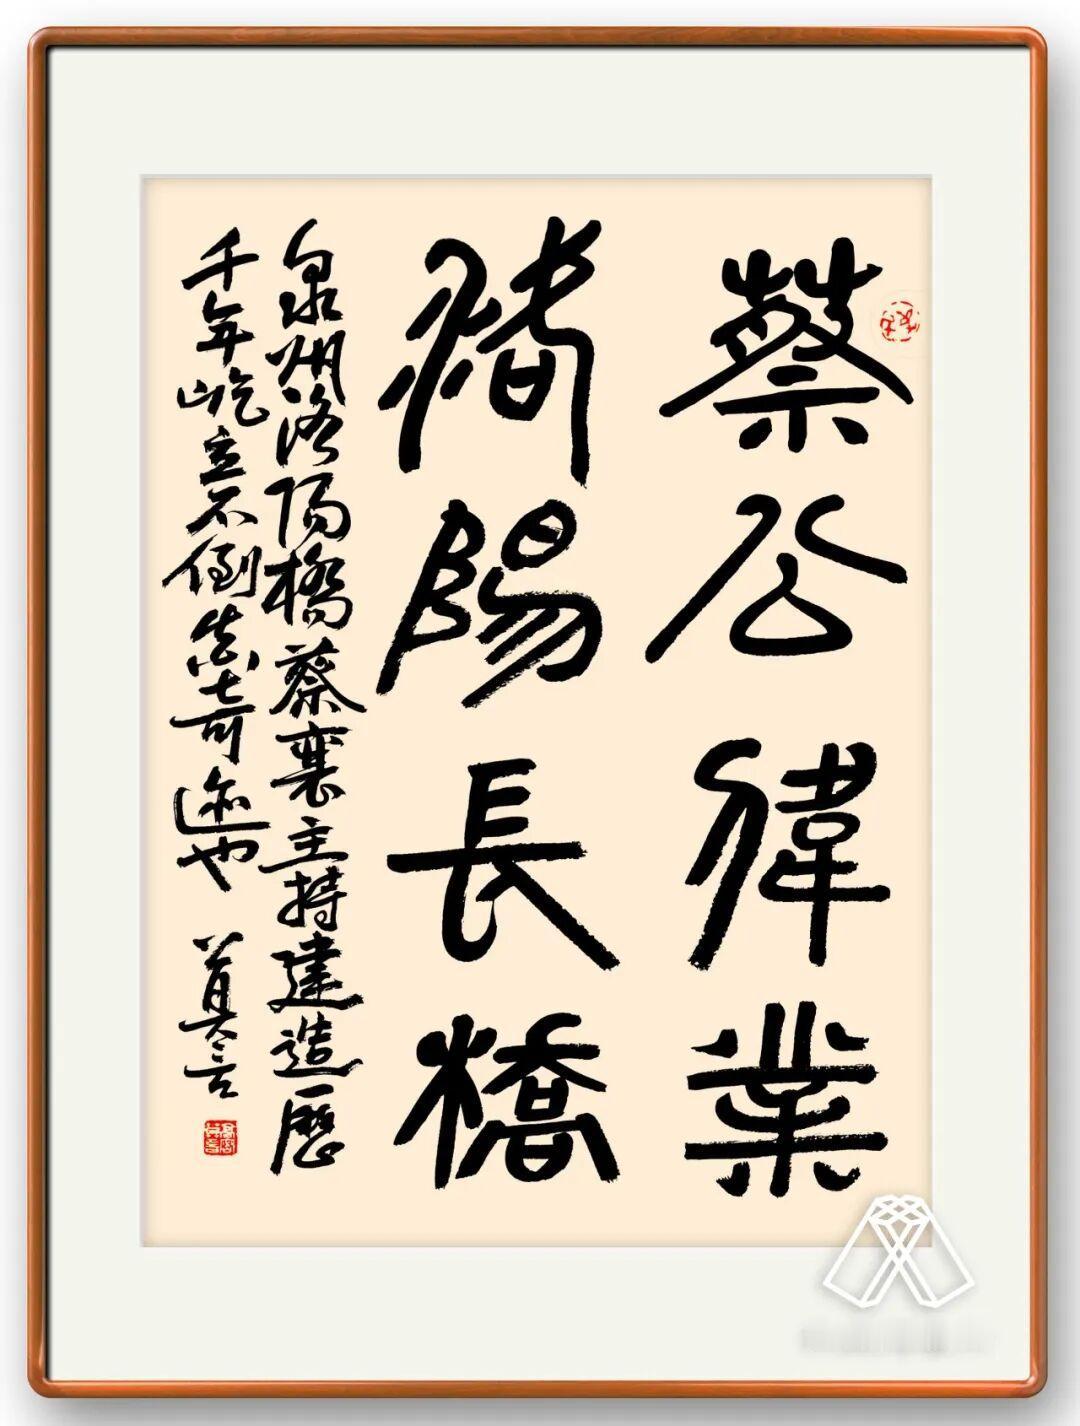 蔡公偉業
陽長橋
泉州洛陽橋蔡襄主持建造歷
千年屹立不倒真奇迹也 莫言